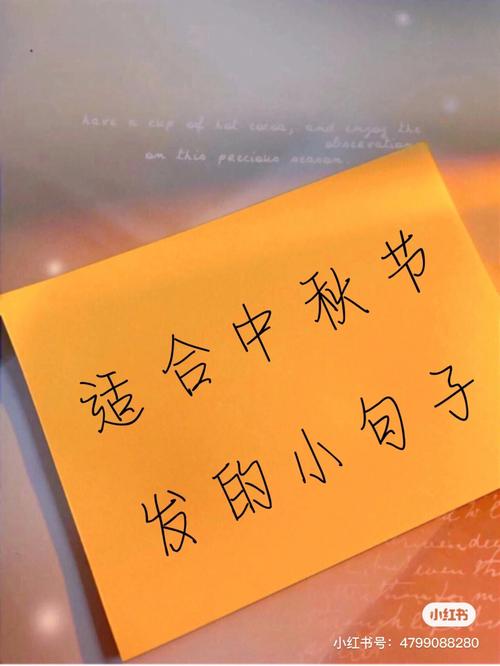 have a cup of hot cocoa, and enjoy the
observation
on this precious season.
适合中秋节
发的小句子
小红书
小红书号：4799088280